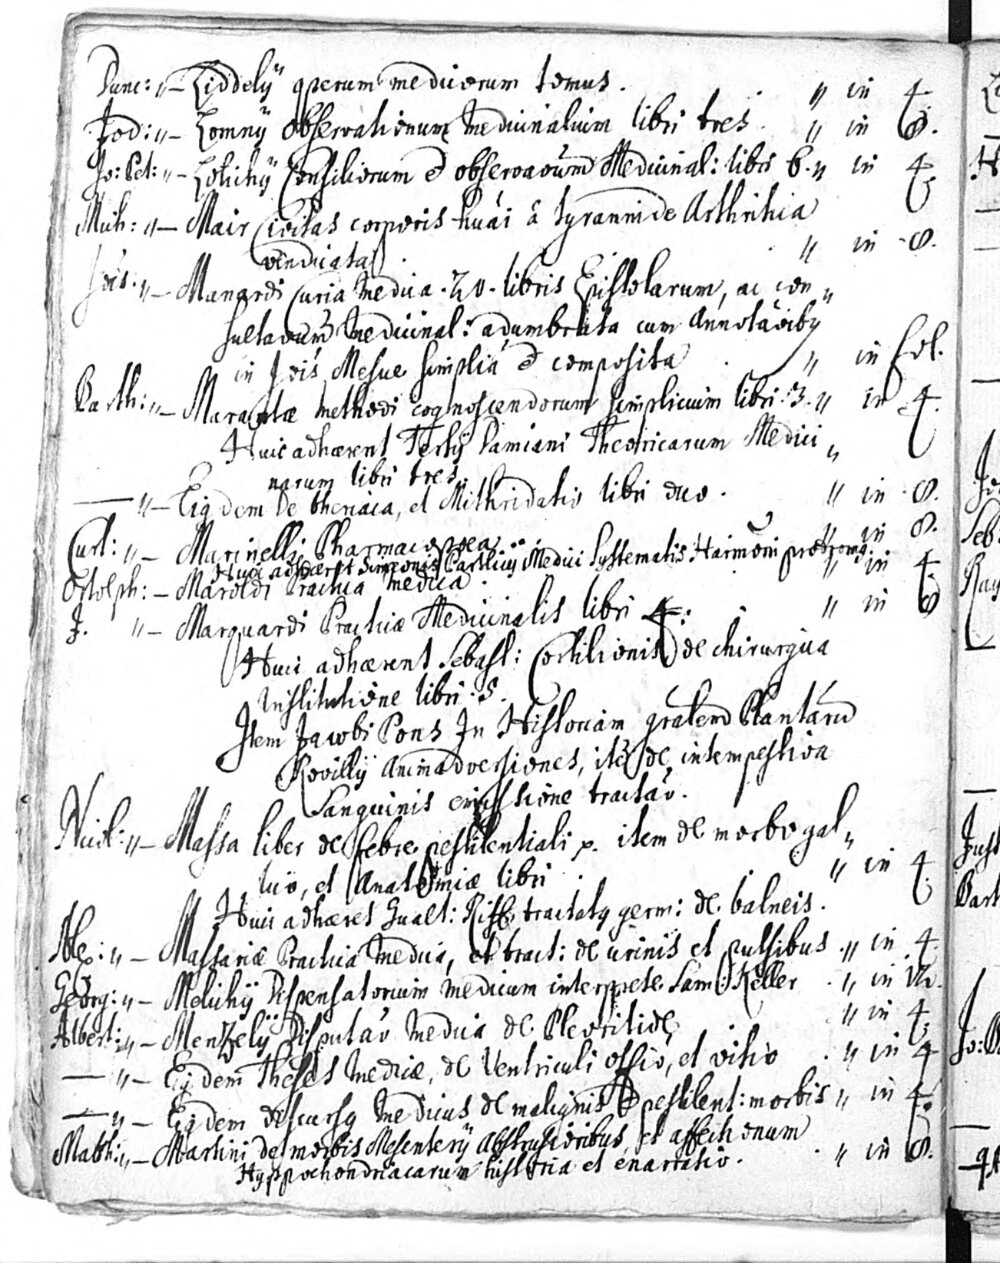 Dunc: „— Liddelÿ operum medicorum tomus. „ in 4.
Jod: „— Lomnÿ observationum Medicinalium libri tres. „ in 8.
Jo: Pet: „— Lotichÿ Consiliorum & observaōūm Medicinal: libri 6. „ in 4
Mich: „— Mair Civitas corporis huāi à tyrannide Arthritica
vindicata. „ in 8.
Jōis. „— Manardi Curia Medica 20. libris Epistolarum, ac con„
sultaōūm Medicinal: adumbrata cum Annotāōiby
in Jōis Mesue simplia & composita „ in fol.
Barth: „— Marantæ methodi cognoscendorum simplicium libri 3. „ in 4.
Huic adhærent Terty Damiani Theoricarum Medici„
narum libri tres.
— „— Ejgdem de theriaca, et Mithridatio libri duo. „ in 8.
Curt: „— Marinelli Pharmacopæa „ in 8.
Huic adhæret Simeonis Partlicÿ Medici Systematis Harmon: prodromg.
Ostolph: — Maroldi Practica medica „ in 4
J. „— Marquardi Practicæ Medicinalis libri 4. „ in 8
Huic adhærent Sebast: Cortilionis de chirurgica
institutione libri 5.
Item Jacobi Pons In Historiam grālem Plantārū
Rovillÿ animadversiones, itē de intempestiva
Sanguinis emissione tractāō.
Nicol: „— Massa liber de febre pestilentiali p. item de morbo gal„
lico, et Anatomiæ libri. „ in 4
Huic adhæret Gualt: Riff: tractatg germ: de balneis.
Alex: „— Massariæ Practica Medica, et tract: de urinis et pulsibus „ in 4.
Georg: „— Melichÿ Dispensatorium medicum interprete Sam: Keller „ in 4.
Albert: „— Mentzelÿ Disputāō Medica de Pleuritide „ in 4
— „— Ejgdem Theses Medicæ, de Ventriculi offio, et vitio „ in 4
— „— Ejgdem discursg medicus de malignis & pestilent: morbis „ in 4.
Matth: „— Martini de morbis Mesenterÿ Abstrusioribus et affectionum
Hyppochondriacarum historia et enarratio. „ in 8.